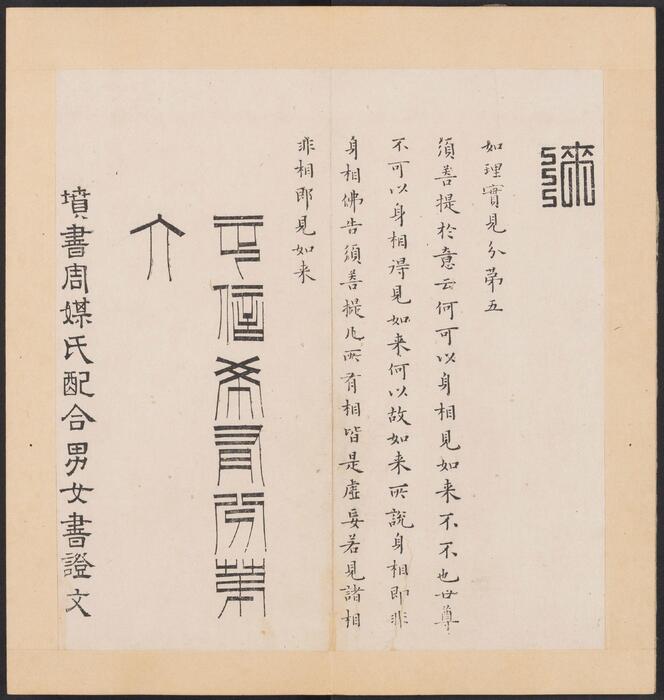 來
如理實見分第五
須菩提於意云何可以身相見如来不不也世尊
不可以身相得見如来何以故如来所說身相即非
身相佛告須菩提凡所有相皆是虛妄若見諸相
非相即見如来
正信希有分第
六
墳書周媒氏配合男女書證文